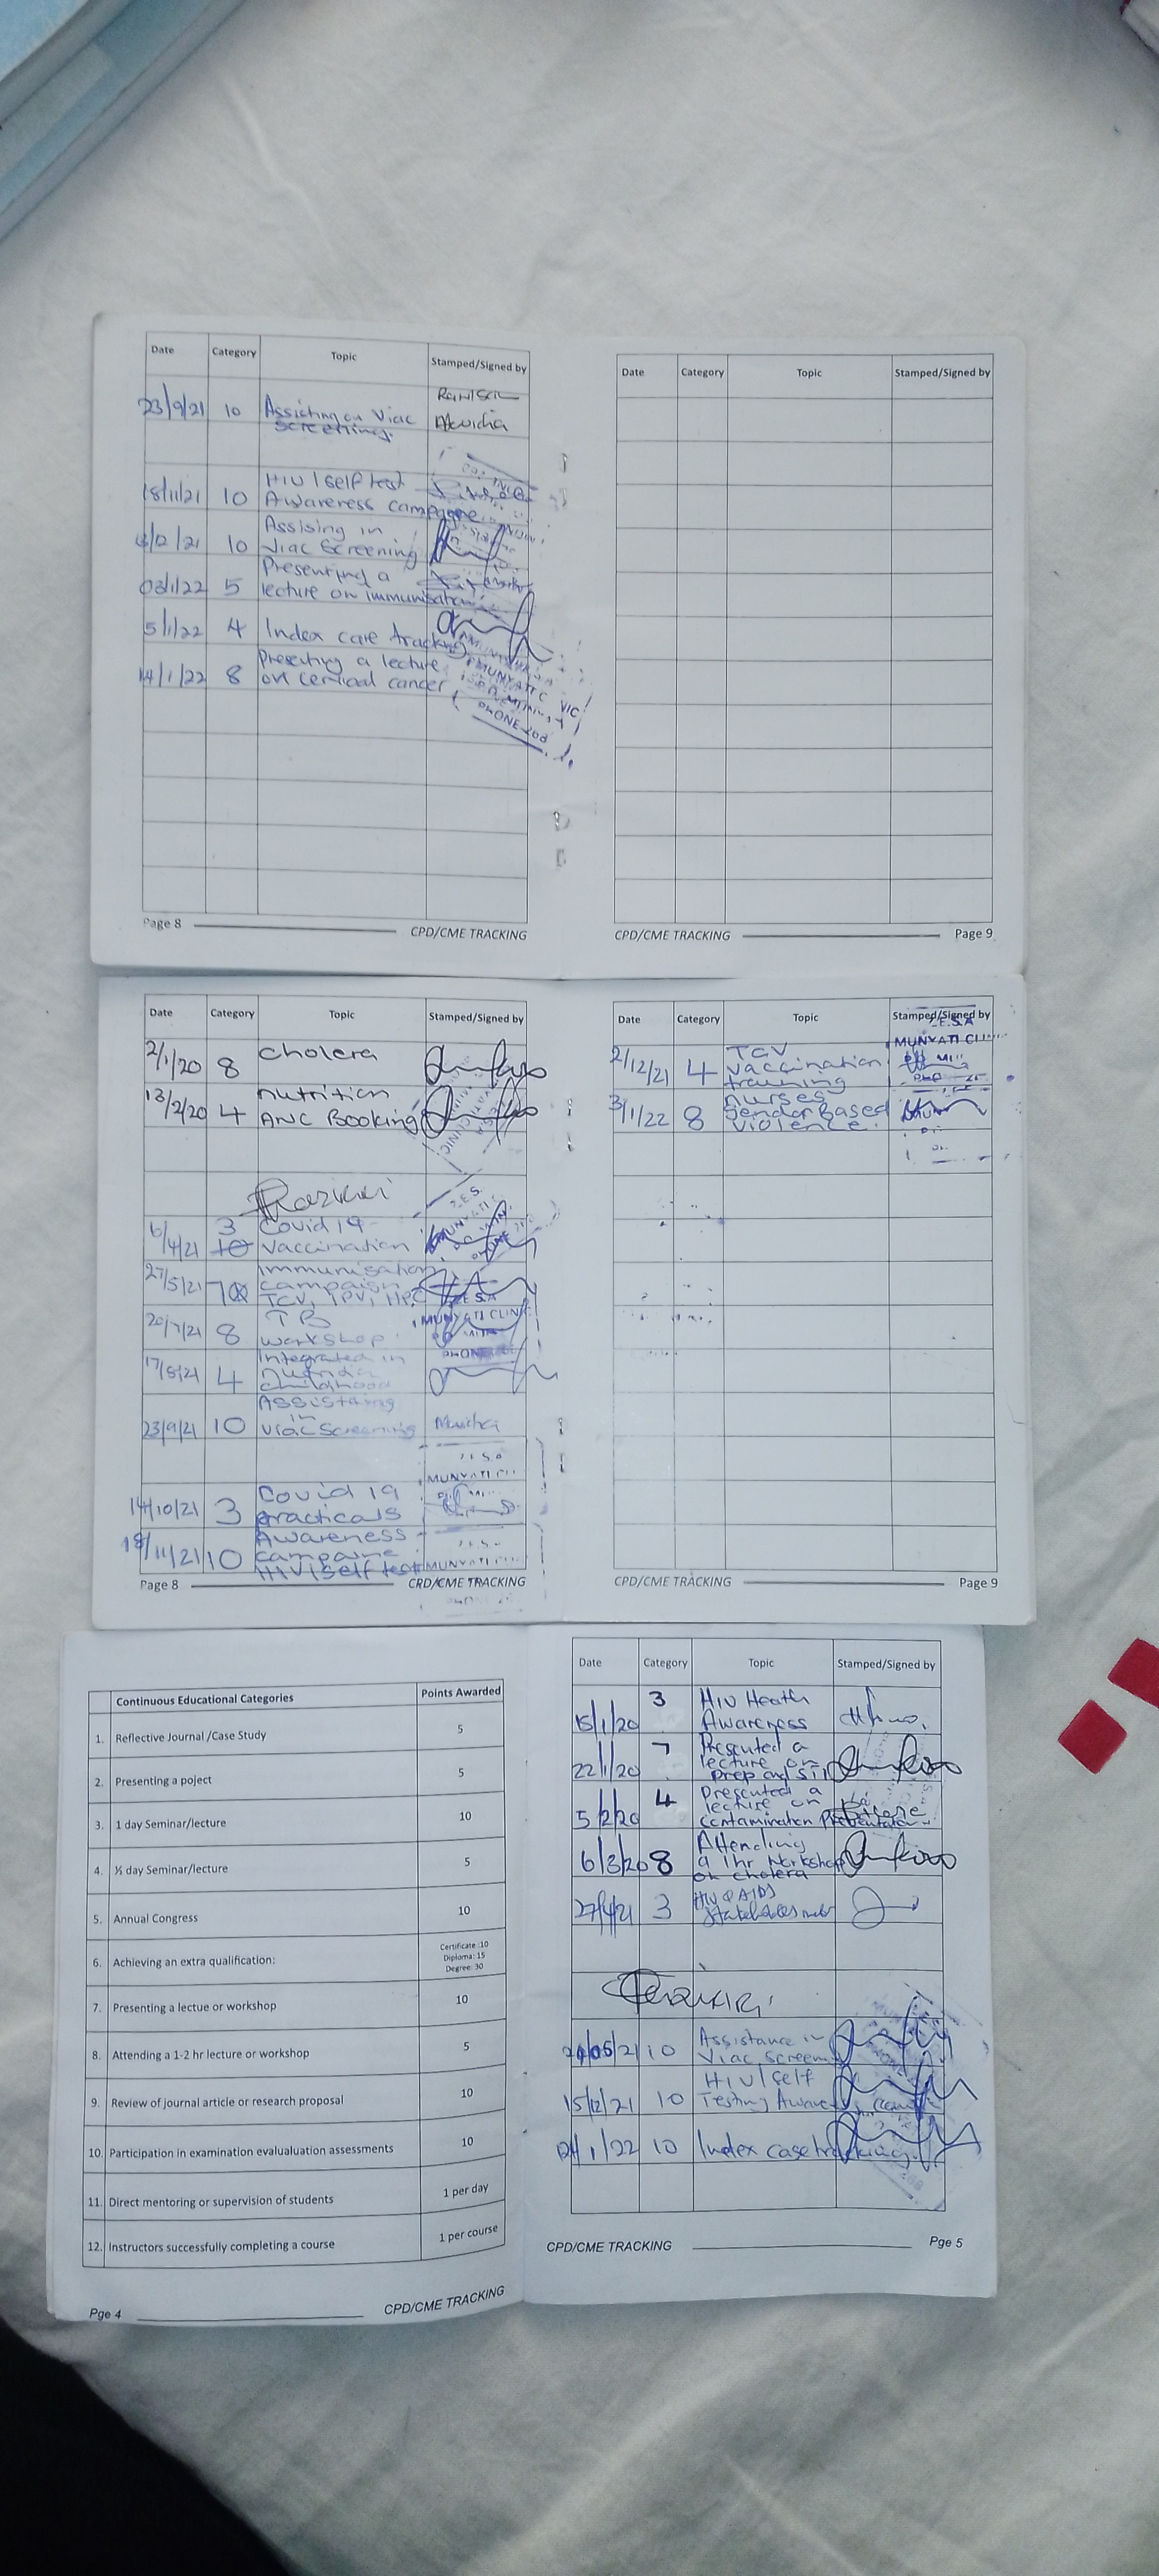 Date Category Topic Stamped/Signed by
23/9/21 10 Assisting on Viac
screenings.
18/11/21 10 HIV/self test
Awareness campagne
/12/21 10 Assising in
Viac Screening
03/1/22 5 Presenting a
lecture on immunisation
5/1/22 4 Index care tracking
14/1/22 8 Presenting a lecture
on cervical cancer
MUNYATI C VIC
PHONE 208
Page 8 CPD/CME TRACKING
Date Category Topic Stamped/Signed by
CPD/CME TRACKING Page 9
Date Category Topic Stamped/Signed by
2/1/20 8 cholera
13/2/20 4 nutrition
ANC Booking
CLINIC
6/4/21 3 Covid 19
10 vaccination
27/5/21 7 immunisation
campaign
TCV, IPV, HPC
20/7/21 8 TB
workshop
MUNYATI CLINIC
17/8/21 4 integrated in
childhood
23/9/21 10 Assistaing
in
viac screening
14/10/21 3 Covid 19
practicals
MUNYATI
18/11/21 10 Awareness
campaine
HIV/self test
MUNYATI
Page 8 CRD/CME TRACKING
Date Category Topic Stamped/Signed by
Z.E.S.A
MUNYATI CLI
2/12/21 4 TCV
vaccination
training
3/1/22 8 nurses
Gender Based
violence.
CPD/CME TRACKING Page 9
Continuous Educational Categories Points Awarded
1. Reflective Journal /Case Study 5
2. Presenting a poject 5
3. 1 day Seminar/lecture 10
4. ½ day Seminar/lecture 5
5. Annual Congress 10
6. Achieving an extra qualification: Certificate :10
Diploma: 15
Degree: 30
7. Presenting a lectue or workshop 10
8. Attending a 1-2 hr lecture or workshop 5
9. Review of journal article or research proposal 10
10. Participation in examination evalualuation assessments 10
11. Direct mentoring or supervision of students 1 per day
12. Instructors successfully completing a course 1 per course
Pge 4 CPD/CME TRACKING
Date Category Topic Stamped/Signed by
15/1/20 3 HIV Heath
Awareness
22/1/20 7 Presented a
lecture on
prep and STI
5/2/20 4 Presented a
lecture on
contamination
6/3/20 8 Attending
a 1hr workshop
on cholera
27/4/21 3 HIV & AIDS
10 Assistance in
Viac Screening
15/12/21 10 HIV/self
Testing Awareness
/1/22 10 Index case tracking
CPD/CME TRACKING Pge 5